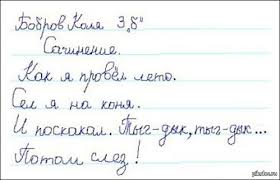 Бобров Коля 3 „Б"
Сочинение.
Как я провёл лето.
Сел я на коня.
И поскакал. Тыг-дык, тыг-дык...
Потом слез!